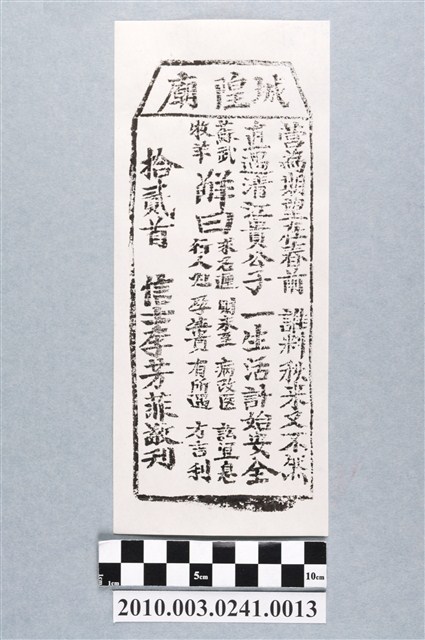 城隍廟
營為期望在春前 誰料秋來又不然
直遇清江貴公子 一生活計始安全
蘇武
牧羊
解曰
求名遲 未至 病改医 訟宜息
行人 貴 有所遇 方吉利
拾貳首 信士李芳菲敬刊
1cm 5cm 10cm
2010.003.0241.0013